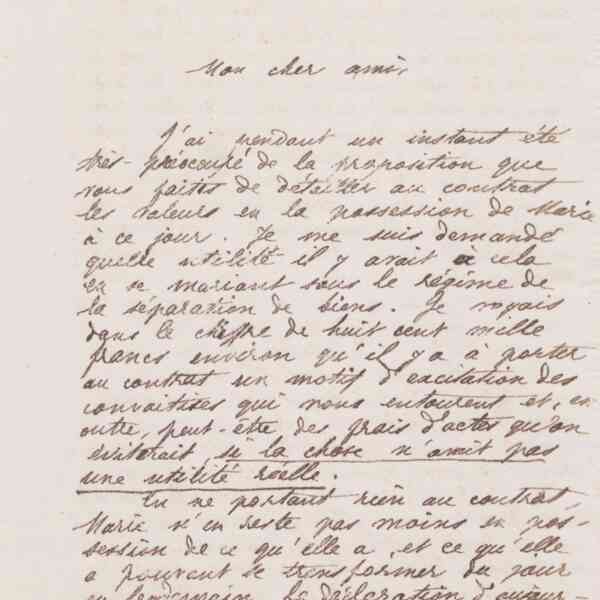 Mon cher ami,
J'ai pendant un instant été
très-préoccupé de la proposition que
vous faites de détailler au contrat
les valeurs en la possession de Marie
à ce jour. Je me suis demandé
quelle utilité il y avait à cela
en se mariant sous le régime de
la séparation de biens. Je voyais
dans le chiffre de huit cent mille
francs environ qu'il y a à porter
au contrat un motif d'excitation des
convoitises qui nous entourent et, en
outre, peut-être des frais d'actes qu'on
éviterait, si la chose n'avait pas
une utilité réelle.
En ne portant rien au contrat,
Marie n'en reste pas moins en pos-
session de ce qu'elle a, et ce qu'elle
a pouvant se transformer du jour
au lendemain, la déclaration